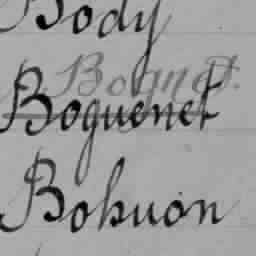 Body
Bognet.
Boguenet
Bohuon